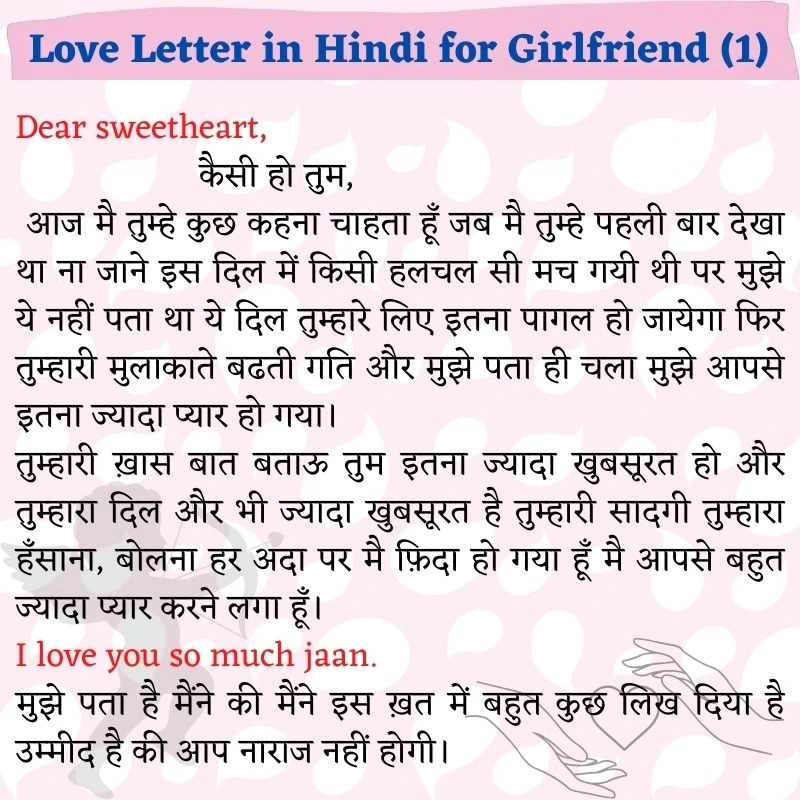 Love Letter in Hindi for Girlfriend (1)
Dear sweetheart,
कैसी हो तुम,
आज मै तुम्हे कुछ कहना चाहता हूँ जब मै तुम्हे पहली बार देखा
था ना जाने इस दिल में किसी हलचल सी मच गयी थी पर मुझे
ये नहीं पता था ये दिल तुम्हारे लिए इतना पागल हो जायेगा फिर
तुम्हारी मुलाकाते बढती गति और मुझे पता ही चला मुझे आपसे
इतना ज्यादा प्यार हो गया।
तुम्हारी ख़ास बात बताऊ तुम इतना ज्यादा खुबसूरत हो और
तुम्हारा दिल और भी ज्यादा खुबसूरत है तुम्हारी सादगी तुम्हारा
हँसाना, बोलना हर अदा पर मै फ़िदा हो गया हूँ मै आपसे बहुत
ज्यादा प्यार करने लगा हूँ।
I love you so much jaan.
मुझे पता है मैंने की मैंने इस ख़त में बहुत कुछ लिख दिया है
उम्मीद है की आप नाराज नहीं होगी।